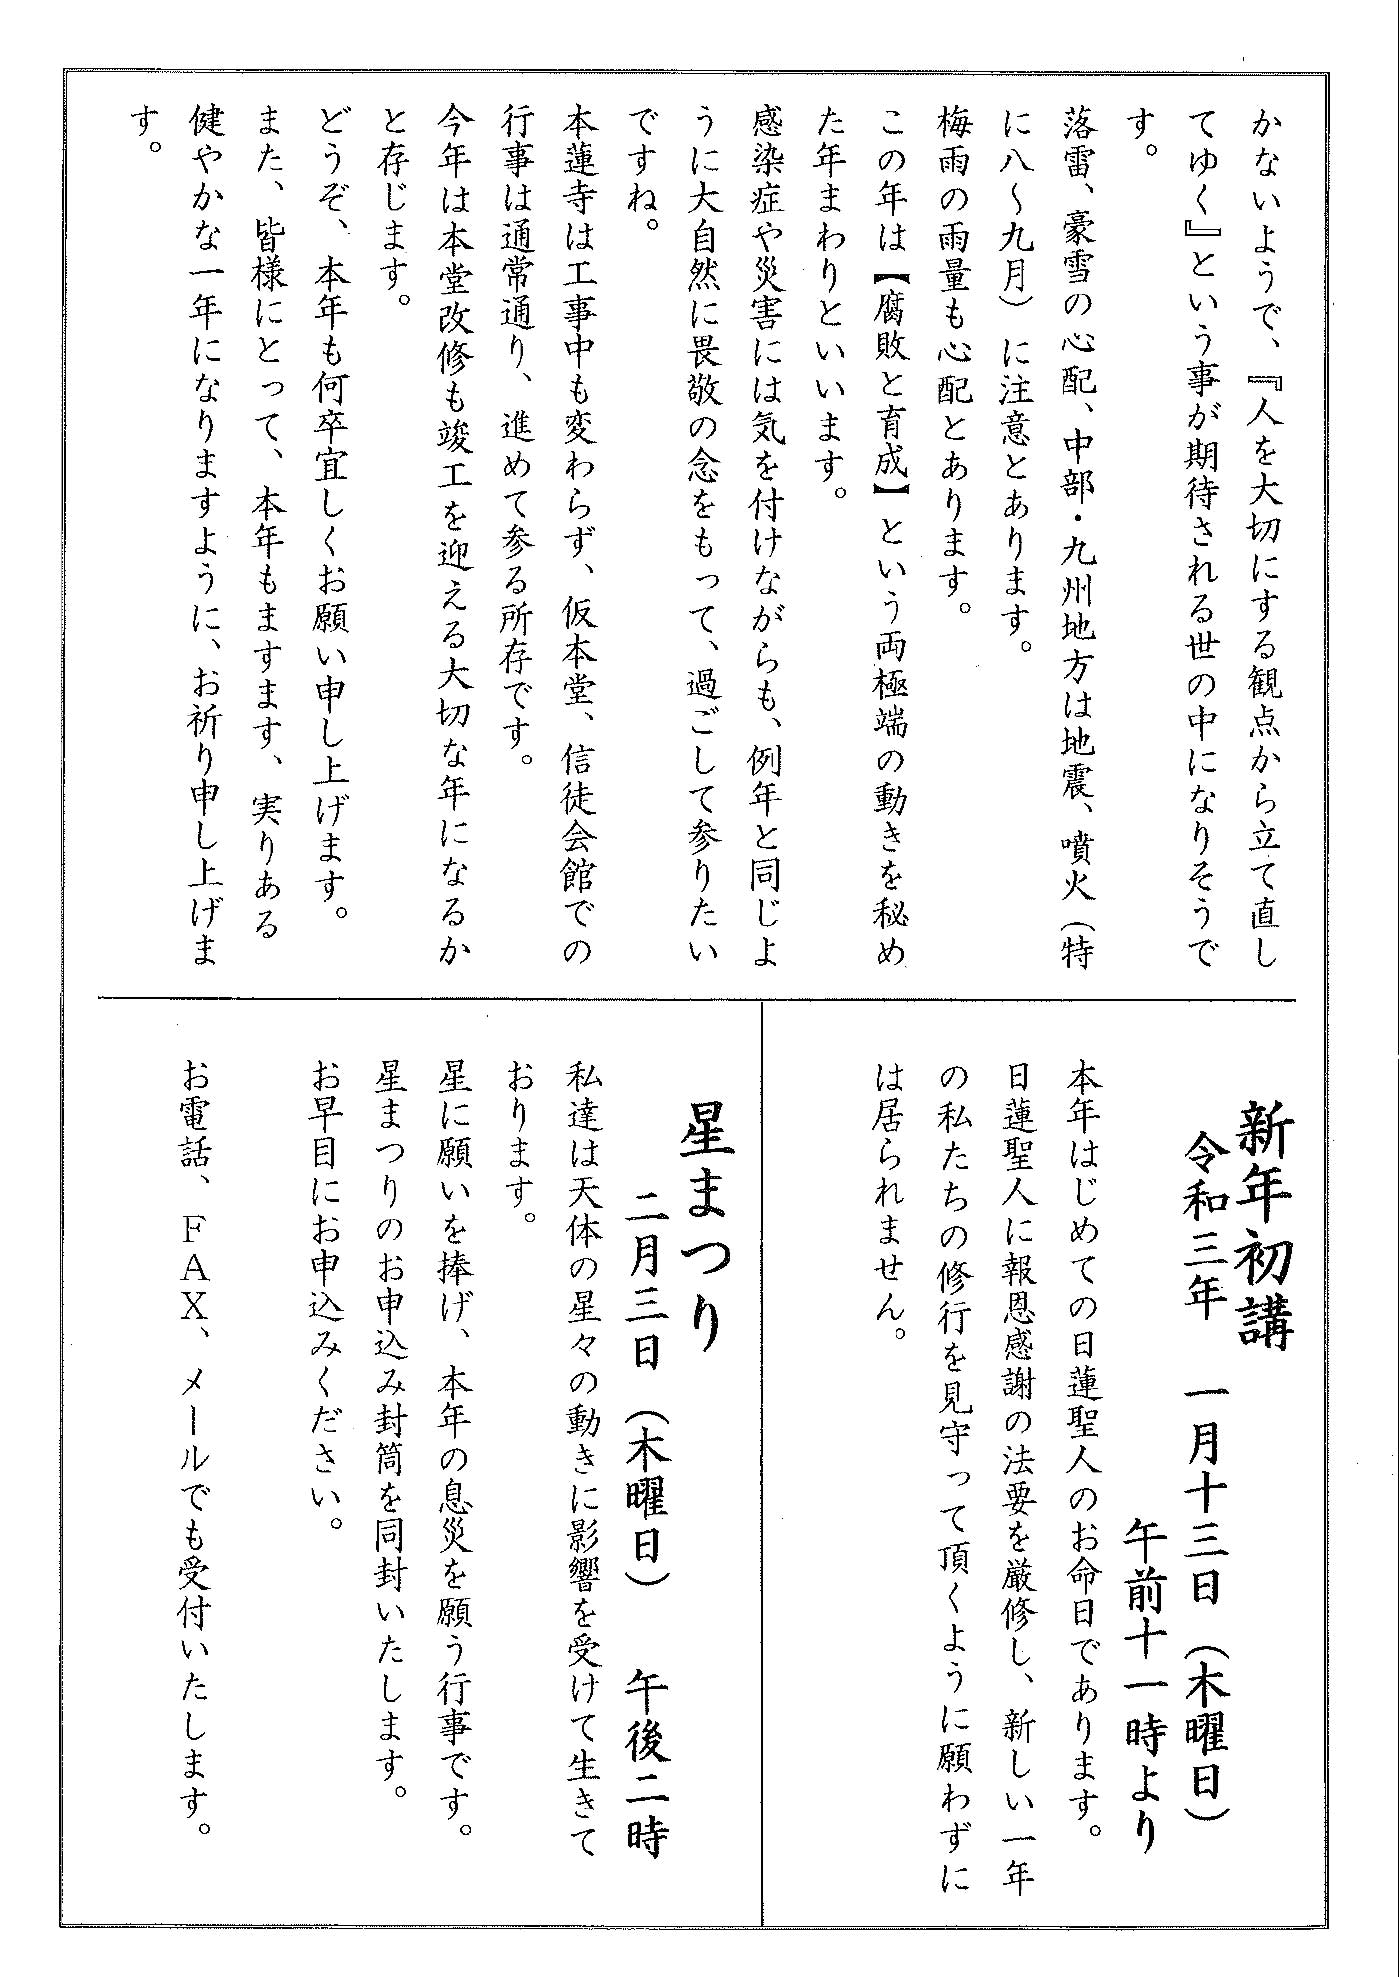 かないようで、『人を大切にする観点から立て直し
てゆく』という事が期待される世の中になりそうで
す。
落雷、豪雪の心配、中部・九州地方は地震、噴火（特
に八～九月）に注意とあります。
梅雨の雨量も心配とあります。
この年は【腐敗と育成】という両極端の動きを秘め
た年まわりといいます。
感染症や災害には気を付けながらも、例年と同じよ
うに大自然に畏敬の念をもって、過ごして参りたい
ですね。
本蓮寺は工事中も変わらず、仮本堂、信徒会館での
行事は通常通り、進めて参る所存です。
今年は本堂改修も竣工を迎える大切な年になるか
と存じます。
どうぞ、本年も何卒宜しくお願い申し上げます。
また、皆様にとって、本年もますます、実りある
健やかな一年になりますように、お祈り申し上げま
す。
新年初講
令和三年　一月十三日（木曜日）
午前十一時より
本年はじめての日蓮聖人のお命日であります。
日蓮聖人に報恩感謝の法要を厳修し、新しい一年
の私たちの修行を見守って頂くように願わずに
は居られません。
星まつり
二月三日（木曜日）　午後二時
私達は天体の星々の動きに影響を受けて生きて
おります。
星に願いを捧げ、本年の息災を願う行事です。
星まつりのお申込み封筒を同封いたします。
お早目にお申込みください。
お電話、ＦＡＸ、メールでも受付いたします。